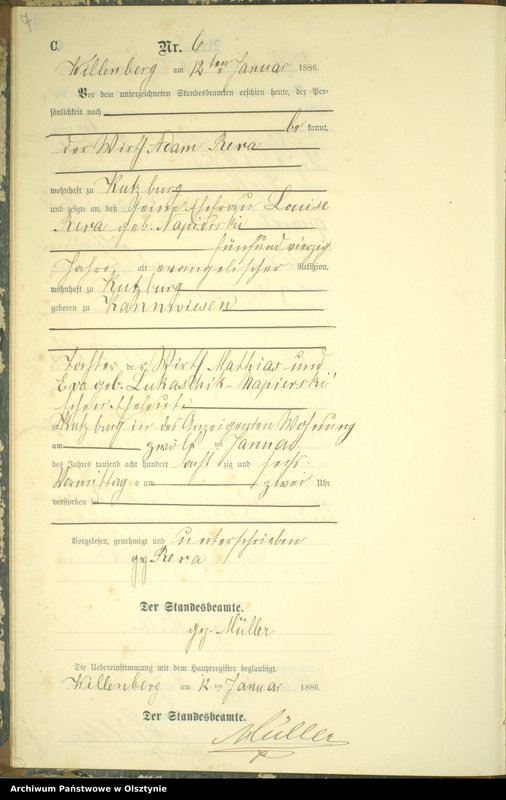 C.
Nr. 6
Willenberg am 12ten Januar 1886.
Vor dem unterzeichneten Standesbeamten erschien heute, der Per-
sönlichkeit nach
be kannt,
der Wirth Adam Rera
wohnhaft zu Kutzburg
und zeigte an, daß seine Ehefrau Louise
Rera geb. Napierski
fünfundvierzig
Jahre alt evangelischer Religion,
wohnhaft zu Kutzburg
geboren zu Kannwiesen
Tochter der Wirth Mathias und
Eva geb. Lukaschik-Napierski'
schen Eheleute
zu Kutzburg in des Anzeigenden Wohnung
am zwölf ten Januar
des Jahres tausend acht hundert acht zig und sechs
Vormittags um zwei Uhr
verstorben sei
Vorgelesen, genehmigt und unterschrieben
gez Rera
Der Standesbeamte.
gez. Müller
Die Uebereinstimmung mit dem Hauptregister beglaubigt.
Willenberg am 12 ten Januar 1886.
Der Standesbeamte.
Müller
Archiwum Państwowe w Olsztynie